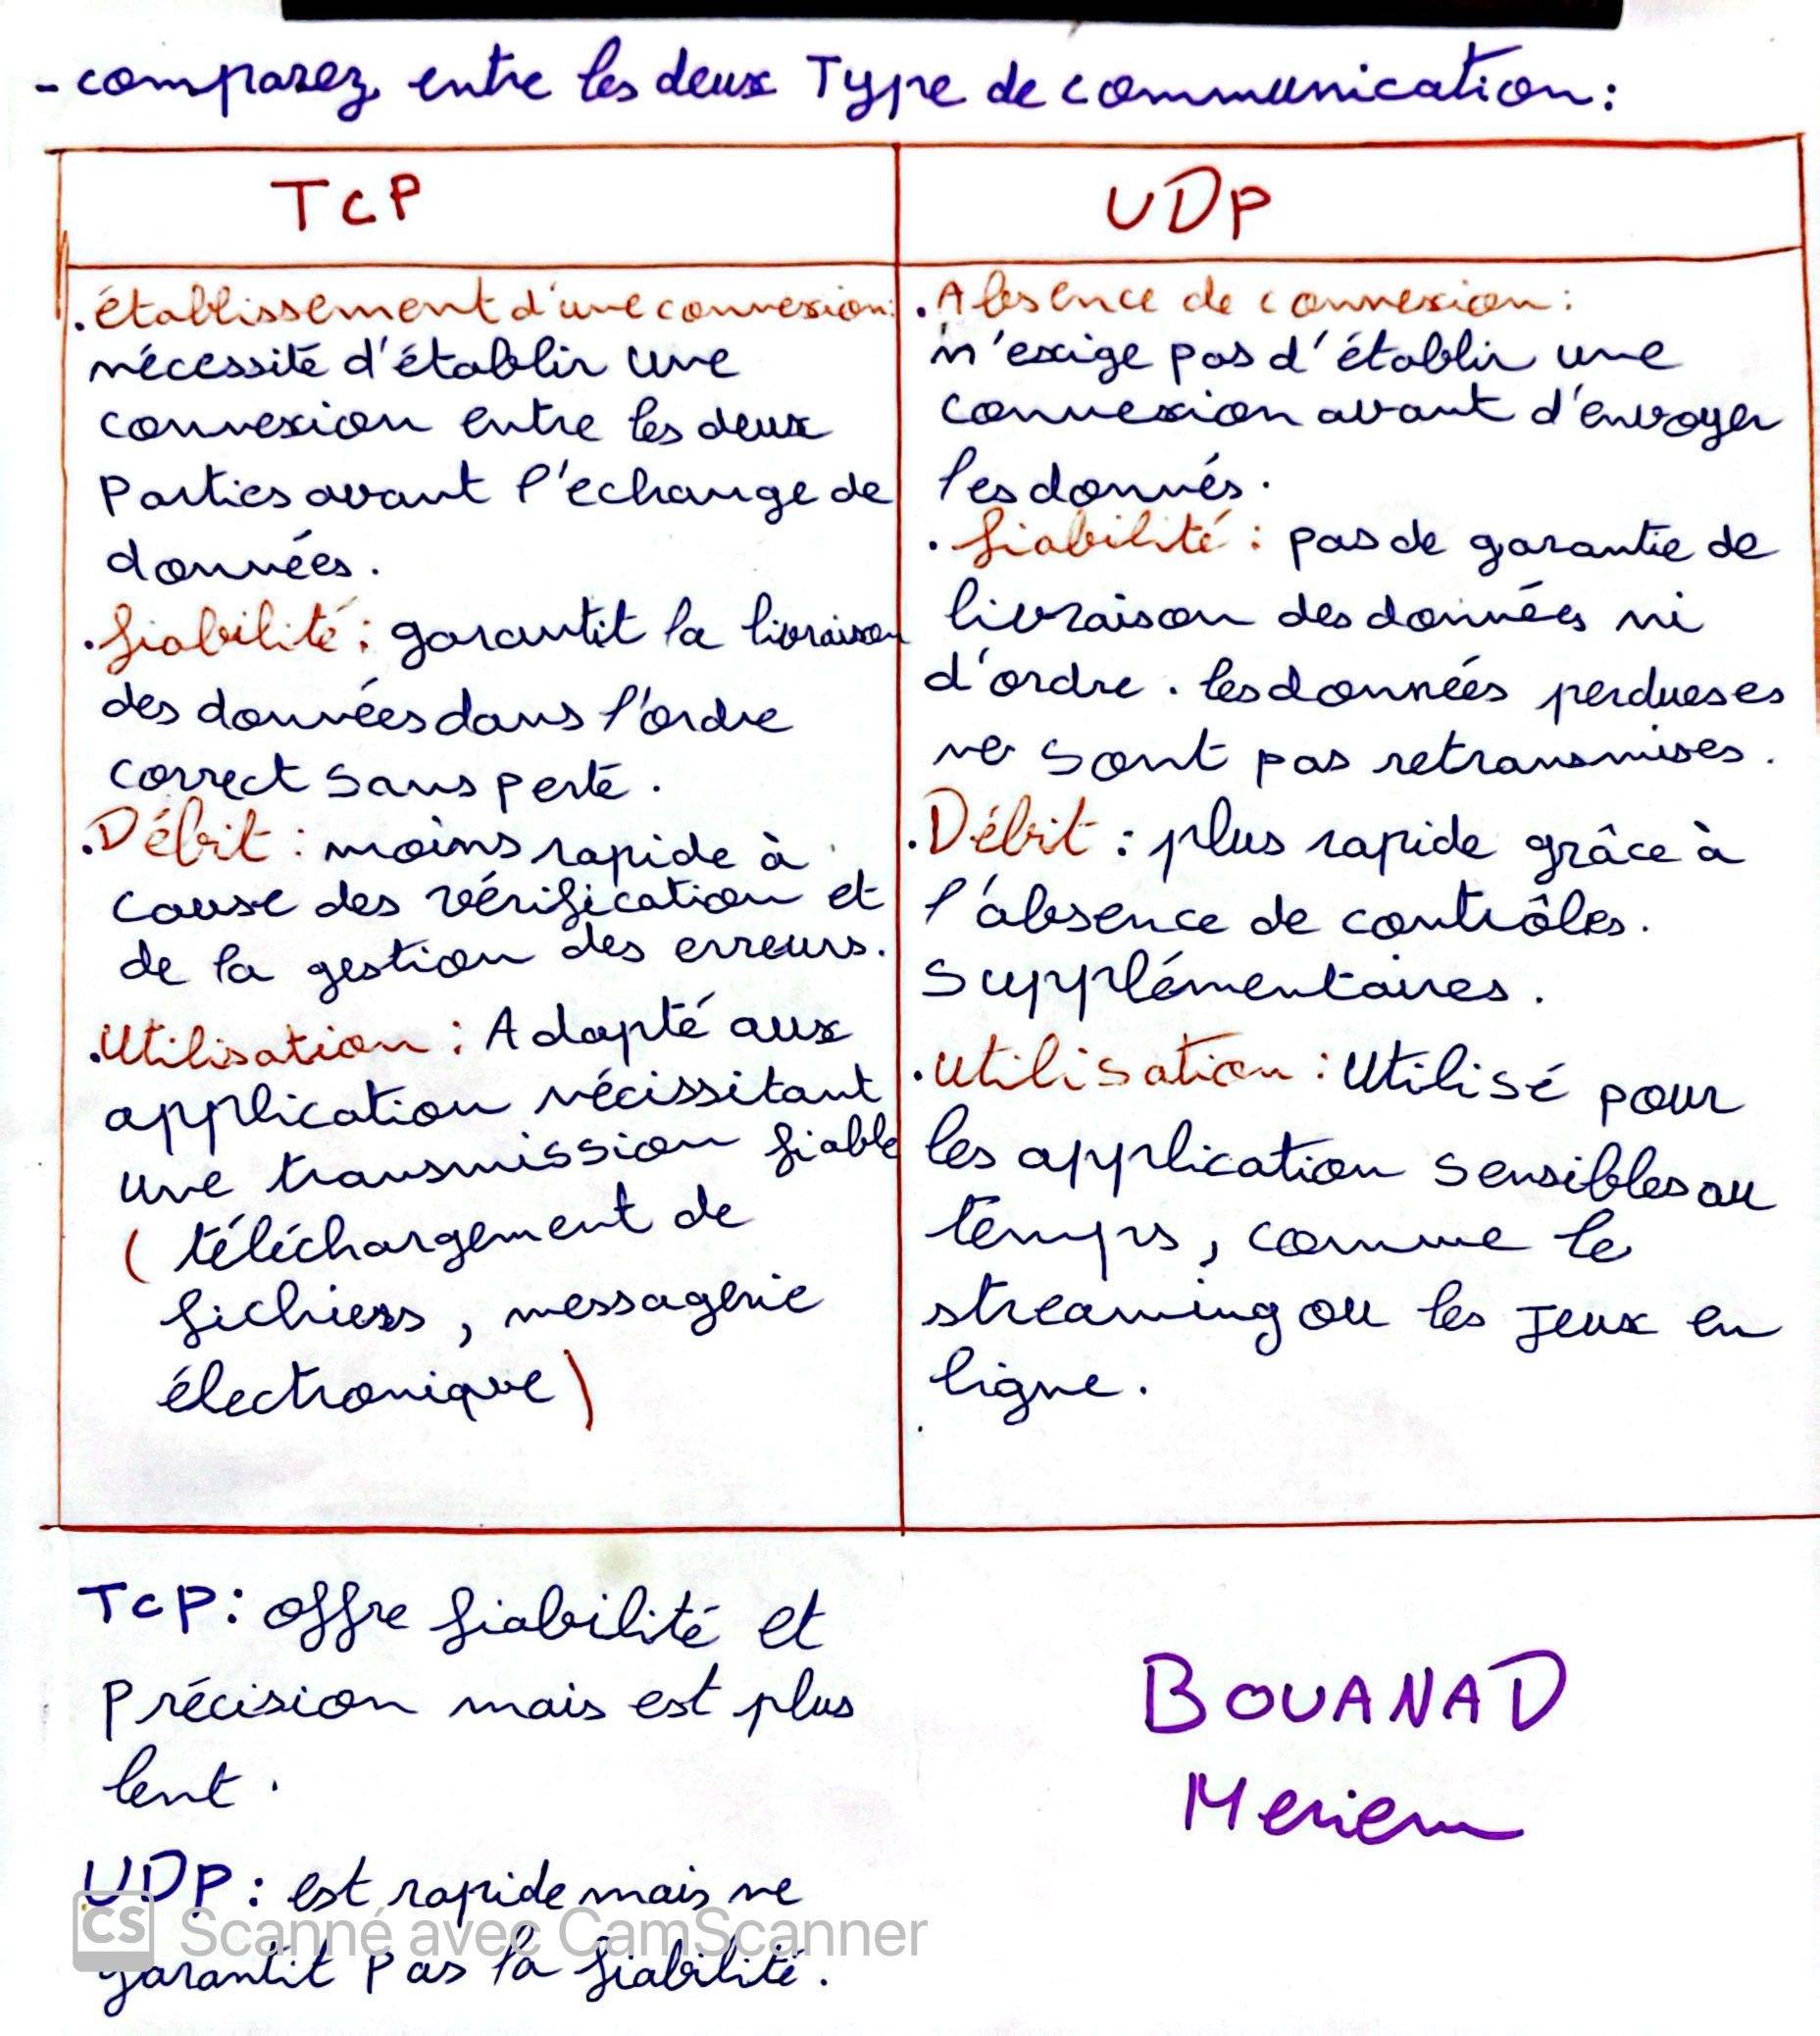 - comparez entre les deux Type de communication :
TCP
établissement d'une connexion:
nécessité d'établir une
connexion entre les deux
Parties avant l'echange de
données.
. fiabilité : garantit la livraison
des données dans l'ordre
correct sans perte.
. Débit : moins rapide à
cause des vérification et
de la gestion des erreurs.
. Utilisation : Adapté aux
application nécissitant
une transmission fiable
( téléchargement de
fichiers, messagerie
électronique)
UDP
. Absence de connexion :
n'exige pas d'établir une
connexion avant d'envoyer
les donnés.
. fiabilité : pas de garantie de
livraison des données ni
d'ordre. les données perdueses
ne sont pas retransmises.
. Débit : plus rapide grâce à
l'absence de contrôles.
Supplémentaires.
. Utilisation : Utilisé pour
les application sensibles au
temps, comme le
streaming ou les Jeux en
ligne.
TCP : offre fiabilité et
Précision mais est plus
lent.
UDP : est rapide mais ne
garantit Pas la fiabilité.
BOUANAD
Meriem
CS Scanné avec CamScanner